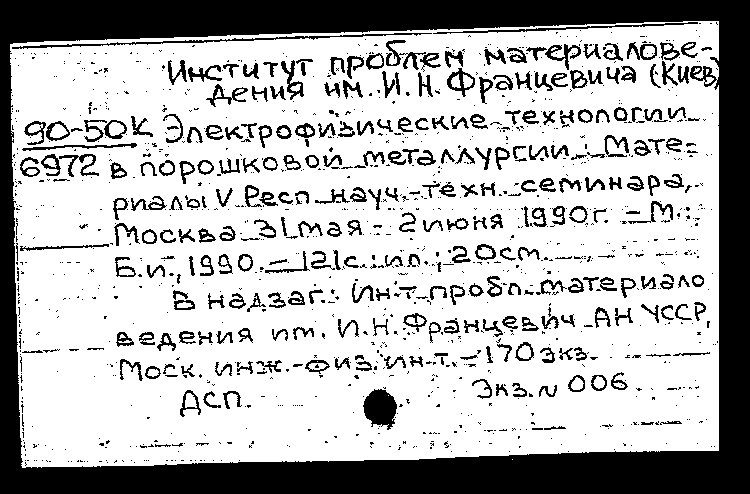 Институт проблем материалове-
дения им. И.Н. Францевича (Киев)
90-50К Электрофизические технологии
6972 в порошковой металлургии: Мате-
риалы V Респ. науч.-техн. семинара,
Москва 31 мая - 2 июня 1990г. - М.:
Б.и., 1990. - 121с.: ил.; 20см
В надзаг.: Ин-т пробл. материало
ведения им. И.Н. Францевич АН УССР,
Моск. инж.-физ. ин-т. - 170 экз.
ДСП. Экз. N 006